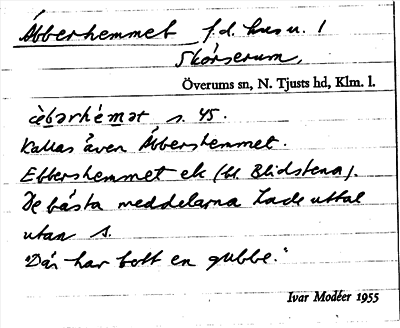 Äbberhemmet f.d. hus u. 1
Skörserum,
Överums sn, N. Tjusts hd, Klm. l.
èbərhémət s. 45.
Kallas även Äbbershemmet.
Ebbershemmet ek (bl. Blidstena).
De bästa meddelarna hade uttal
utan s.
"Där har bott en gubbe."
Ivar Modéer 1955